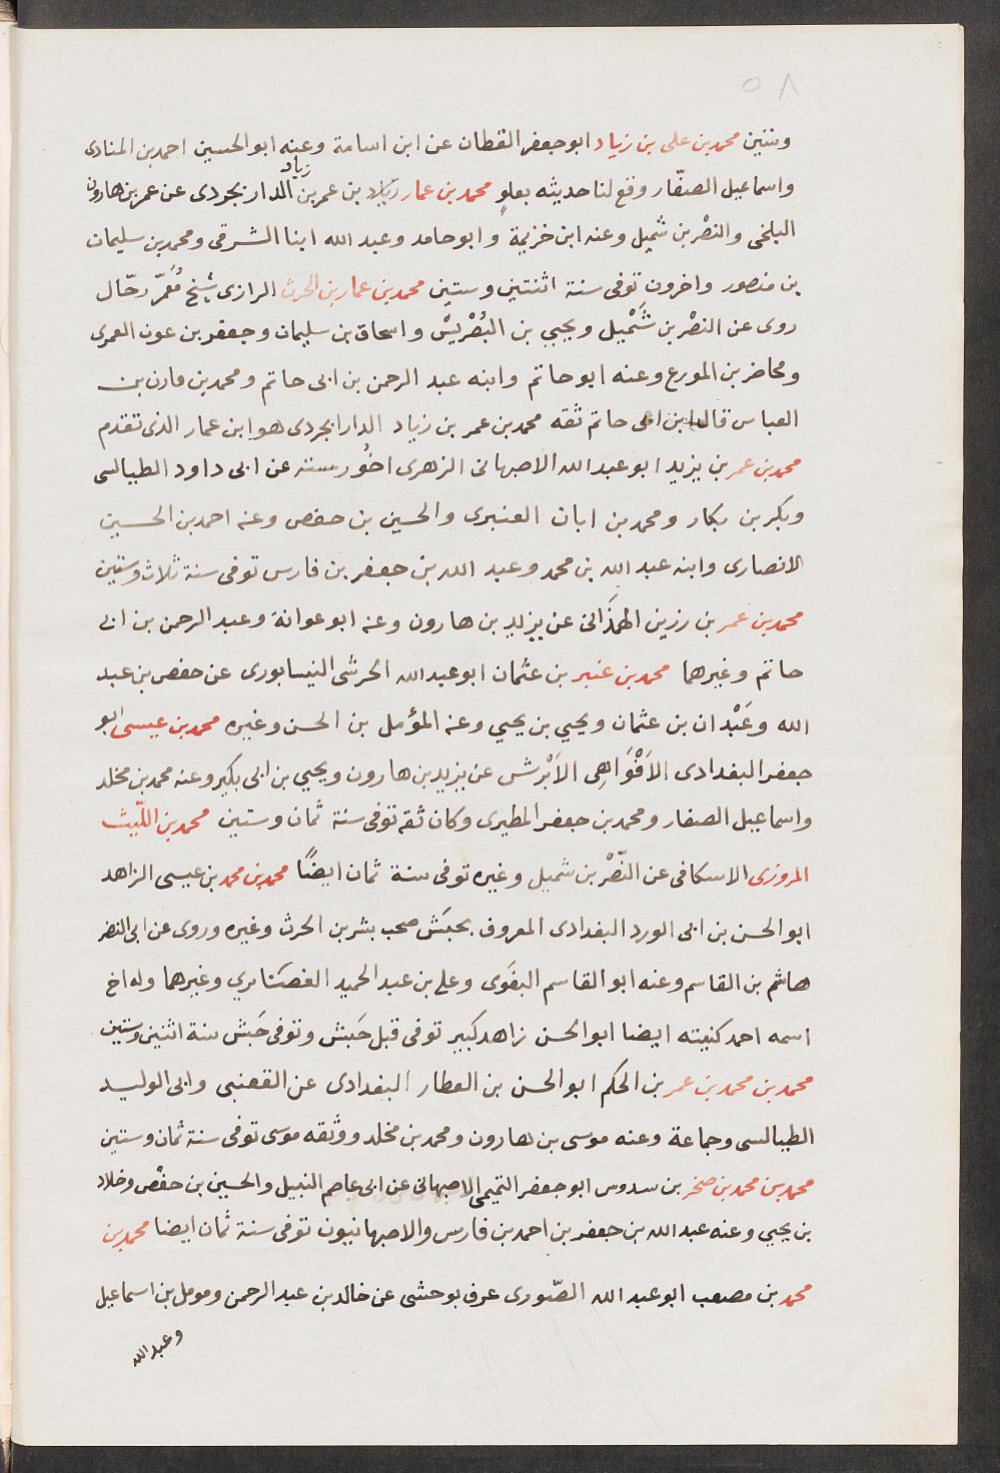 ٥٨
وستين محمد بن على بن زياد ابو جعفر القطان عن ابن اسامة وعنه ابو الحسين احمد بن المنادى
زياد
واسماعيل الصفّار وقع لنا حديثه بعلوٍ محمد بن عمار بن عمر بن الدارابجردى عن عمر بن هارون
البلخى والنضْر بن شميل وعنه ابن خزيمة وابو حامد وعبد الله ابنا الشرقى ومحمد بن سليمان
بن منصور واخرون توفى سنة اثنتين وستين محمد بن عمار بن الحرث الرازى شيخ مُعَمّر رحّال
روى عن النضْر بن شُمْيل ويحيي بن الضُرْيسْ واسحاق بن سليمان وجعفر بن عون العمرى
ومحاضر بن المورع وعنه ابو حاتم وابنه عبد الرحمن بن ابى حاتم ومحمد بن قارن بن
العباس قال ابن ابى حاتم ثقه محمد بن عمر بن زياد الدارابجردى هو ابن عمار الذى تقدم
محمد بن عمر بن يزيد ابو عبد الله الاصبهانى الزهرى اخُو رسته عن ابى داود الطيالسى
وبكر بن بكار ومحمد بن ابان العنبرى والحسين بن حفص وعنه احمد بن الحسين
الانصارى وابنه عبد الله بن محمد وعبد الله بن جعفر بن فارس توفى سنة ثلاث وستين
محمد بن عمر بن رزين الهمَذَانى عن يزيد بن هارون وعنه ابو عوانة وعبد الرحمن بن ابى
حاتم وغيرهما محمد بن عنبر بن عثمان ابو عبد الله الحرشى النيسابورى عن حفص بن عبد
الله وعَبْدان بن عثمان ويحيي بن يحيي وعنه المؤمل بن الحسن وغيره محمد بن عيسى ابو
جعفر البغدادى الاَفْوَاهِى الاَبْرش عن يزيد بن هارون ويحيي بن ابى بكير وعنه محمد بن مخلد
واسماعيل الصفار ومحمد بن جعفر المطيرى وكان ثقه توفى سنة ثمان وستين محمد بن اللّيث
المروزى الاسكافى عن النّضْر بن شميل وغيره توفى سنة ثمان ايضًا محمد بن محمد بن عيسى الزاهد
ابو الحسن بن ابى الورد البغدادى المعروف بحبَش صحب بشر بن الحرث وغيره وروى عن ابى النضر
هاشم بن القاسم وعنه ابو القاسم البغَوى وعلى بن عبد الحميد الغضَنايري وغيرهما وله اخ
اسمه احمد كنيته ايضا ابو الحسن زاهد كبير توفى قبل حَبش وتوفى حَبش سنة اثنين وستين
محمد بن محمد بن عمر بن الحكم ابو الحسن بن العطار البغدادى عن القعنبى وابى الوليد
الطيالسى وجماعة وعنه موسى بن هارون ومحمد بن مخلد ووثقه موسى توفى سنة ثمان وستين
محمد بن محمد بن صخر بن سدوس ابو جعفر التميمى الاصبهانى عن ابى عاصم النبيل والحسين بن حفْص وخلاد
بن يحيي وعنه عبد الله بن جعفر بن احمد بن فارس والاصبهانيون توفى سنة ثمان ايضا محمد بن
محمد بن مصعب ابو عبد الله الصّورى عرف بوحشى عن خالد بن عبد الرحمن ومومل بن اسماعيل
وعبد الله